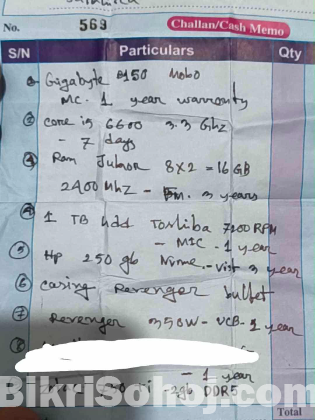 No. 569 Challan/Cash Memo
S/N Particulars Qty
Gigabyte B150 Mobo
MC. 1 year warranty
② core i5 6600 3.3 Ghz
- 7 days
Ram 8X2 = 16 GB
2400 Mhz - 3 years
1 TB hdd Toshiba 7200 RPM
- MTC - 1 year
⑤ Hp 250 gb Nvme - 3 year
⑥ casing Revenger bullet
⑦ Revenger 350W - VCB - 1 year
⑧
- 1 year
2gb DDR5
BikriSohoj.com
Total